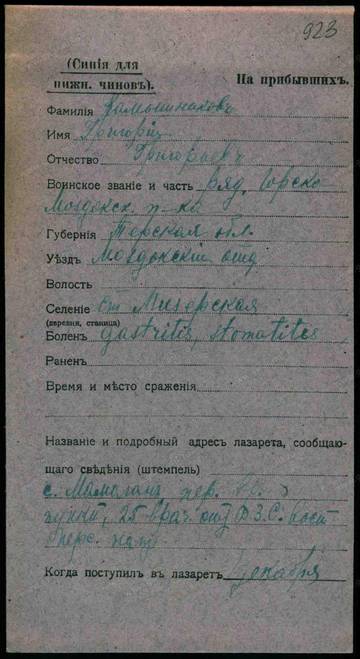 923
(Синія для
нижн. чиновъ). На прибывшихъ.
Фамилія Камышниковъ
Имя Григорій
Отчество Григорьевъ
Воинское званіе и часть ряд. Горско-
Моздокск. п-ка
Губернія Терская обл.
Уѣздъ Моздокскій отд
Волость
Селеніе ст.
(деревня, станица)
Боленъ gastritis, stomatites
Раненъ
Время и мѣсто сраженія
Названіе и подробный адресъ лазарета, сообщаю-
щаго свѣдѣнія (штемпель)
с.
пункт, 25 врач. отд
Когда поступилъ въ лазаретъ декабря